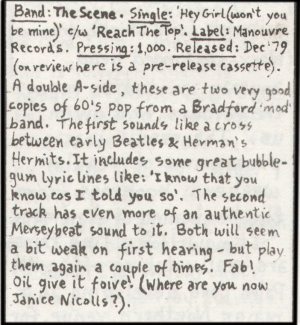 Band: The Scene. Single: 'Hey Girl (won't you
be mine)' c/w 'Reach The Top'. Label: Manouvre
Records. Pressing: 1,000. Released: Dec '79
(on review here is a pre-release cassette).
A double A-side, these are two very good
copies of 60's pop from a Bradford 'mod'
band. The first sounds like a cross
between early Beatles & Herman's
Hermits. It includes some great bubble-
gum lyric lines like: 'I know that you
know cos I told you so'. The second
track has even more of an authentic
Merseybeat sound to it. Both will seem
a bit weak on first hearing - but play
them again a couple of times. Fab!
Oil give it foive! (Where are you now
Janice Nicolls?).